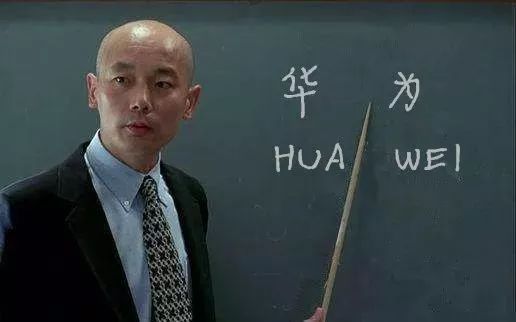 华 为
HUA WEI